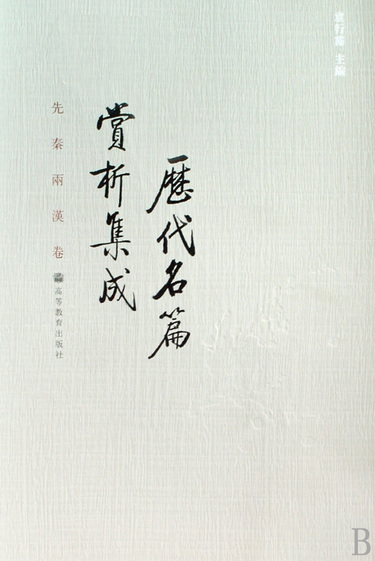 袁行霈 主編
歷代名篇
賞析集成
先秦兩漢卷
高等教育出版社
B